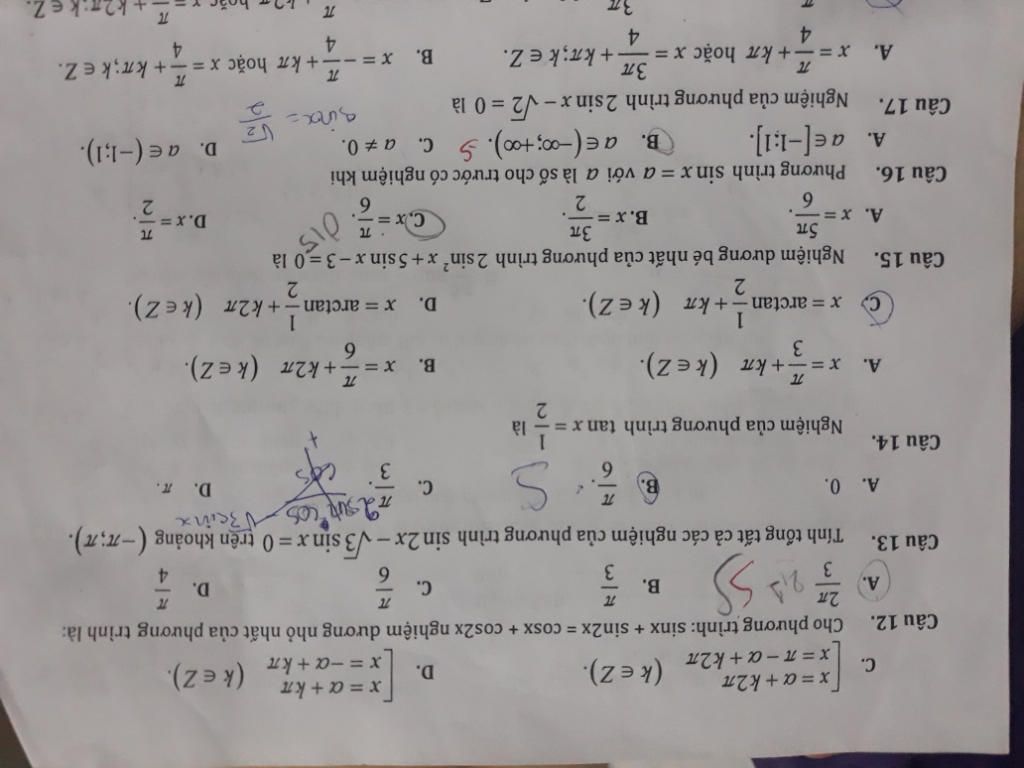 C. [x = α + k2π
x = π − α + k2π (k ∈ Z).
D. [x = α + kπ
x = −α + kπ (k ∈ Z).
Câu 12. Cho phương trình: sinx + sin2x = cosx + cos2x nghiệm dương nhỏ nhất của phương trình là:
A. 2π/3 B. π/3 C. π/6 D. π/4
S
Câu 13. Tính tổng tất cả các nghiệm của phương trình sin 2x − √3 sin x = 0 trên khoảng (−π; π).
2sin cos √3 sinx
cos
A. 0. B. π/6. C. π/3. D. π.
S
Câu 14. Nghiệm của phương trình tan x = 1/2 là
A. x = π/3 + kπ (k ∈ Z). B. x = π/6 + k2π (k ∈ Z).
C. x = arctan 1/2 + kπ (k ∈ Z). D. x = arctan 1/2 + k2π (k ∈ Z).
Câu 15. Nghiệm dương bé nhất của phương trình 2sin² x + 5sin x − 3 = 0 là
A. x = 5π/6. B. x = 3π/2. C. x = π/6. D. x = π/2.
Câu 16. Phương trình sin x = a với a là số cho trước có nghiệm khi
A. a ∈ [−1;1]. B. a ∈ (−∞; +∞). S C. a ≠ 0. D. a ∈ (−1;1).
Câu 17. Nghiệm của phương trình 2 sin x − √2 = 0 là
sinx = √2/2
A. x = π/4 + kπ hoặc x = 3π/4 + kπ; k ∈ Z. B. x = −π/4 + kπ hoặc x = π/4 + kπ; k ∈ Z.